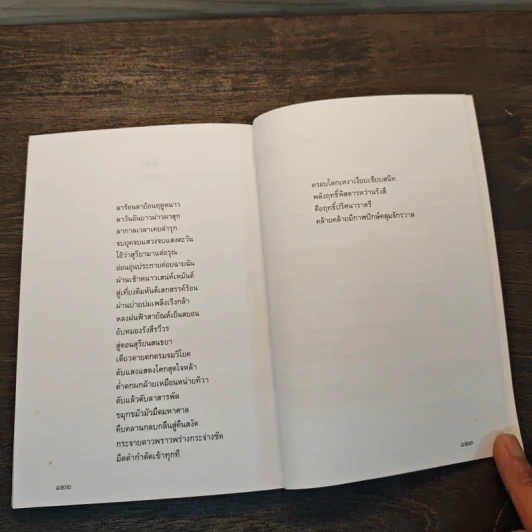 ลาร้อนลาย้อนฤดูหนาว
ลาวันอันยาวผ่าวผาสุก
ลากาลเวลาเคยลำรุก
จบยุคจบแสวงจบแสงตะวัน
โอ้ว่าสุริยามาแต่อรุณ
อ่อนอุ่นประกายค่อยฉายฉัน
ผ่านเช้าหนาวเสน่ห์เหมันต์
สู่เที่ยงคิมหันต์เสกสรรค์ร้อน
ผ่านบ่ายบ่มเพลิงเริงกล้า
หลงฝนฟ้าสายัณห์เย็นสยอน
อับหมองรังสีรวีวร
สู่ตอนสุริยนสนธยา
เดียวดายตกตรมจมวิโยค
ดับแสงแสดงโศกสุดใจหล้า
ต่ำตกผกผ้ายเหมือนหน่ายทิวา
ดับแล้วดับลาสารพัด
ขมุกขมัวมัวมืดมหาศาล
คืบคลานกลบกลืนสู่คืนสงัด
กระจายดาวพราวพร่างกระจ่างชัด
มืดดำกำดัดเข้าทุกที
๑๒๒
ครอบโลกเหงาเงียบเชียบสนิท
พลังฤทธิ์พิสดารหว่านรังสี
คือฤทธิ์ปริศนาราตรี
คล้ายคล้ายมีกาฬปักษ์คลุมจักรวาล
๑๒๓